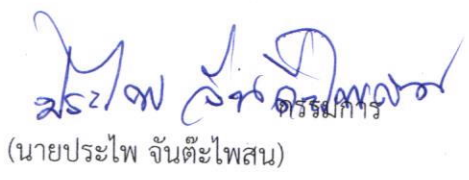 ประไพ จันต๊ะไพสน กรรมการ
(นายประไพ จันต๊ะไพสน)